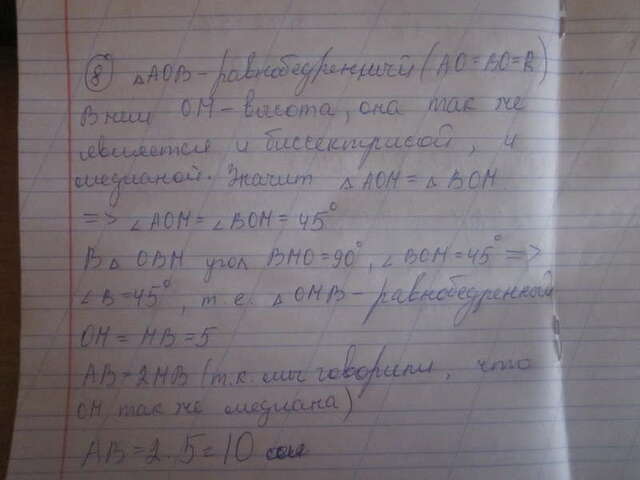 8) △AOB - равнобедренный (AO=BO=R)
В нем OH - высота, она так же
является и биссектрисой, и
медианой. Значит △AOH = △BOH
=> ∠AOH = ∠BOH = 45°
В △ OBH угол BHO=90°, ∠BOH=45° =>
∠B=45°, т.е. △OHB - равнобедренный
OH = HB = 5
AB=2HB (т.к. мы говорили, что
OH так же медиана)
AB=2·5=10 см